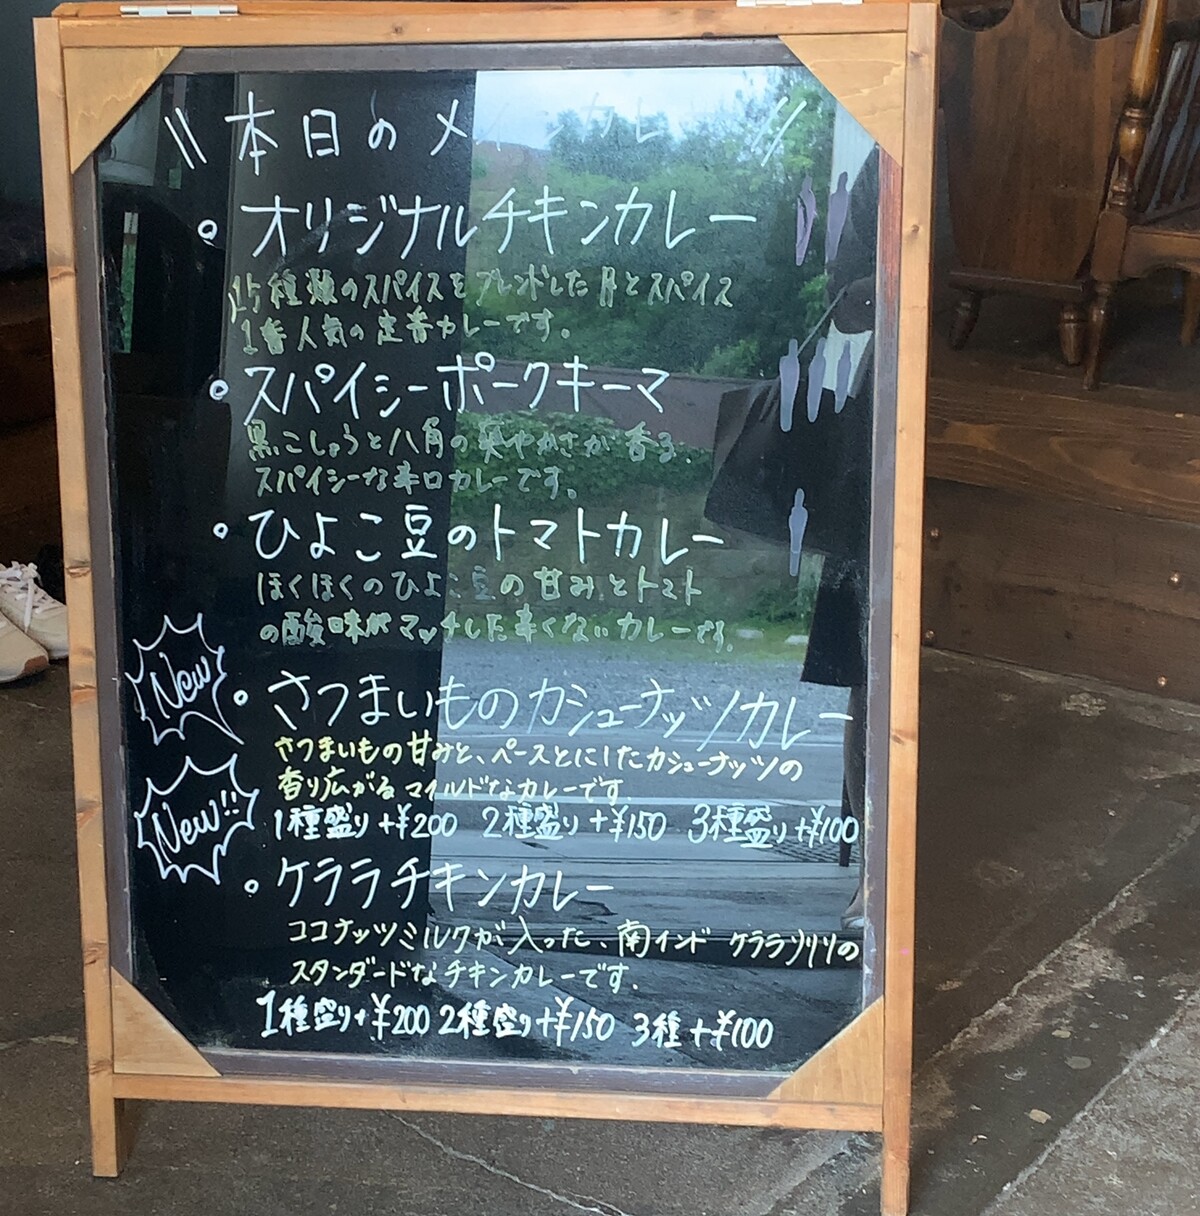 \\ 本日のメインカレー //
・オリジナルチキンカレー
15種類のスパイスをブレンドした月とスパイス
1番人気の定番カレーです。
・スパイシーポークキーマ
黒こしょうと八角の爽やかさが香る、
スパイシーな辛口カレーです。
・ひよこ豆のトマトカレー
ほくほくのひよこ豆の甘みとトマト
の酸味がマッチした辛くないカレーです。
New
・さつまいものカシューナッツカレー
さつまいもの甘みと、ペーストにしたカシューナッツの
香り広がるマイルドなカレーです
1種盛り+¥200 2種盛り+¥150 3種盛り+¥100
New!!
・ケララチキンカレー
ココナッツミルクが入った、南インド ケララ州の
スタンダードなチキンカレーです。
1種盛り+¥200 2種盛り+¥150 3種+¥100